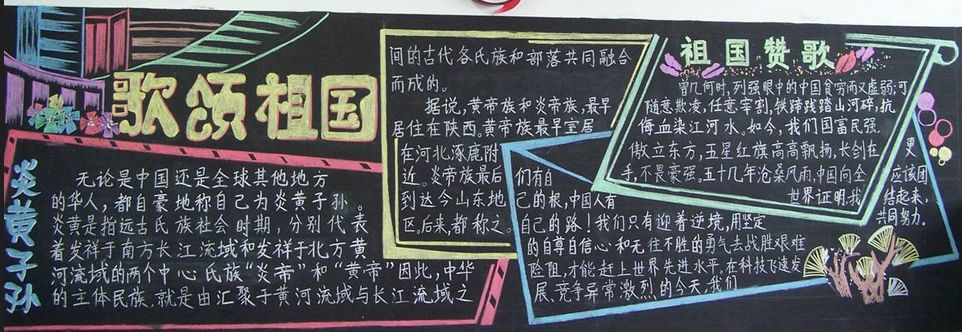 歌颂祖国
炎黄子孙
无论是中国还是全球其他地方
的华人，都自豪地称自己为炎黄子孙。
炎黄是指远古氏族社会时期，分别代表
着发祥于南方长江流域和发祥于北方黄
河流域的两个中心氏族“炎帝”和“黄帝”因此，中华
的主体民族，就是由汇聚于黄河流域与长江流域之
间的古代各氏族和部落共同融合
而成的。
据说，黄帝族和炎帝族，最早
居住在陕西，黄帝族最早定居
在河北涿鹿附
近。炎帝族最后
到达今山东地
区，后来，都称之。
祖国赞歌
曾几何时，列强眼中的中国贫穷而又虚弱；可
随意欺凌，任意宰割，铁蹄践踏山河碎，抗
侮血染江河水。如今，我们国富民强.
傲立东方，五星红旗高高飘扬，长剑在
手，不畏豪强。五十几年沧桑风雨，中国向全
世界证明.我
们有自
己的根，中国人有
自己的路！我们只有迎着逆境，用坚定
的自尊自信心和无往不胜的勇气去战胜艰难
险阻，才能赶上世界先进水平。在科技飞速发
展、竞争异常激烈的今天，我们
更
应该团
结起来，
共同努力.